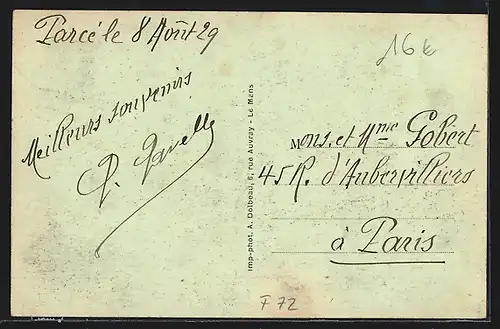 Parcé le 8 Août 29
16€
Meilleurs souvenirs
Imp.-phot. A. Dolbeau, 5, rue Auvray - Le Mans
Mons. et Mme Gobert
45 R. d'Aubervilliers
à Paris
F 72